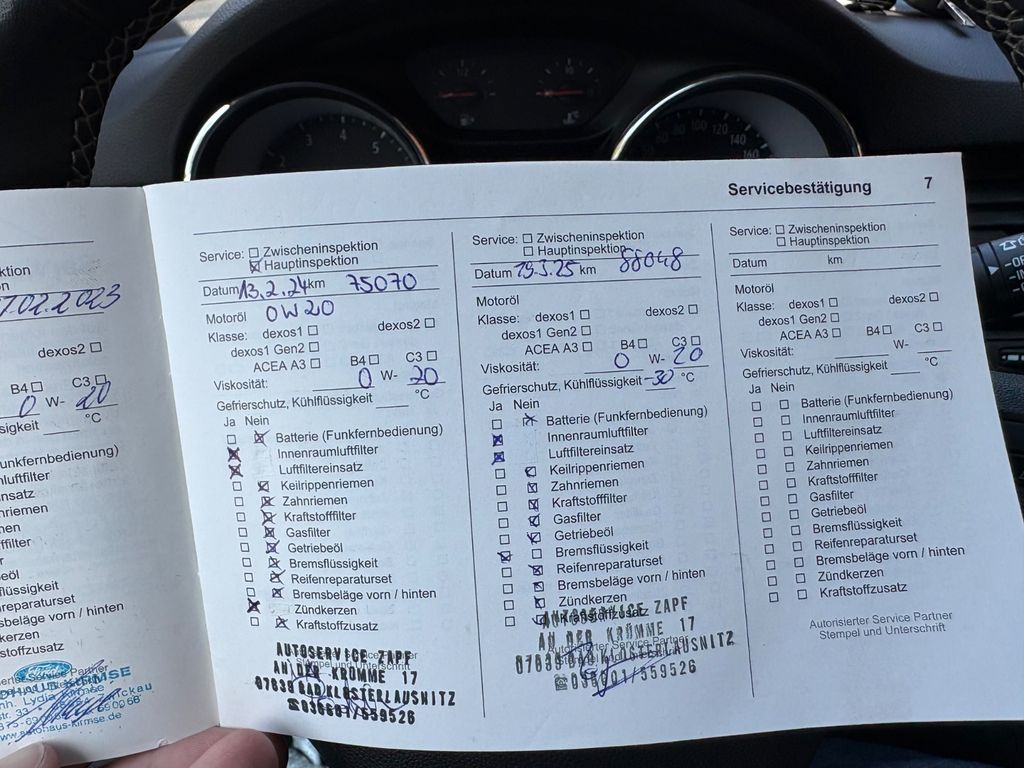 Servicebestätigung 7
ktion
on
02.2023
dexos2
B4 C3
0 W- 20
sigkeit °C
unkfernbedienung)
mluftfilter
insatz
men
filter
eöl
lüssigkeit
nreparaturset
beläge vorn / hinten
kerzen
stoffzusatz
Ford
www.autohaus-kirmse
Service: Zwischeninspektion
Hauptinspektion
Datum 13.2.24 km 75070
Motoröl 0W20
Klasse: dexos1 dexos2
dexos1 Gen2
ACEA A3 B4 C3
Viskosität: 0 W- 20
Gefrierschutz, Kühlflüssigkeit °C
Ja Nein
Batterie (Funkfernbedienung)
Innenraumluftfilter
Luftfiltereinsatz
Keilrippenriemen
Zahnriemen
Kraftstofffilter
Gasfilter
Getriebeöl
Bremsflüssigkeit
Reifenreparaturset
Bremsbeläge vorn / hinten
Zündkerzen
Kraftstoffzusatz
AUTOSERVICE ZAPF
Stempel und Unterschrift
AN DER KROMME 17
07639 BAD KLOSTERLAUSNITZ
☎036601/559526
Service: Zwischeninspektion
Hauptinspektion
Datum 19.5.25 km 88048
Motoröl
Klasse: dexos1 dexos2
dexos1 Gen2
ACEA A3 B4 C3
Viskosität: 0 W- 20
Gefrierschutz, Kühlflüssigkeit -30 °C
Ja Nein
Batterie (Funkfernbedienung)
Innenraumluftfilter
Luftfiltereinsatz
Keilrippenriemen
Zahnriemen
Kraftstofffilter
Gasfilter
Getriebeöl
Bremsflüssigkeit
Reifenreparaturset
Bremsbeläge vorn / hinten
Zündkerzen
Kraftstoffzusatz
AUTOSERVICE ZAPF
AN DER KROMME 17
Autorisierter Service Partner
07639 BAD KLOSTERLAUSNITZ
☎036601/559526
Service: Zwischeninspektion
Hauptinspektion
Datum km
Motoröl
Klasse: dexos1 dexos2
dexos1 Gen2
ACEA A3 B4 C3
Viskosität: W-
Gefrierschutz, Kühlflüssigkeit °C
Ja Nein
Batterie (Funkfernbedienung)
Innenraumluftfilter
Luftfiltereinsatz
Keilrippenriemen
Zahnriemen
Kraftstofffilter
Gasfilter
Getriebeöl
Bremsflüssigkeit
Reifenreparaturset
Bremsbeläge vorn / hinten
Zündkerzen
Kraftstoffzusatz
Autorisierter Service Partner
Stempel und Unterschrift